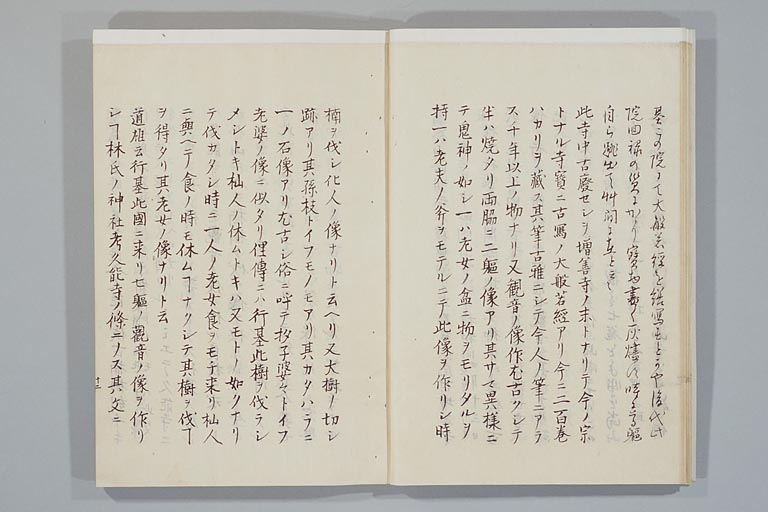 基この院にて大般若経を
院回禄の災にかゝり寶物盡く灰燼の時
自ら
此寺中古廢セシヲ増善寺ノ末トナリテ今ノ宗
トナル寺寳ニ古寫ノ大般若經アリ今ニ二百巻
ハカリヲ藏ス其筆古雅ニシテ今人ノ筆ニアラ
ス千年以上ノ物ナリ又観音ノ像作尤古クシテ
半ハ焼タリ両脇ニ二躯ノ像アリ其サマ異様ニ
テ鬼神ノ如シ一ハ老女ノ盆ニ物ヲモリタルヲ
持一ハ老夫ノ斧ヲモテルニテ此像ヲ作リシ時
楠ヲ伐シ化人ノ像ナリト云ヘリ又大樹ノ切シ
跡アリ其孫枝トイフモノモアリ其カタハラニ
一ノ石像アリ尤古シ俗ニ呼テ抄子婆々トイフ
老婆ノ像ニ似タリ俚傳ニハ行基此樹ヲ伐ラシ
メントキ杣人ノ休ムトキハ又モトノ如クナリ
テ伐カタシ時ニ一人ノ老女食ヲモチ来リ杣人
ニ與ヘテ食ノ時モ休ムヿナクシテ其樹ヲ伐ヿ
ヲ得タリ其老女ノ像ナリト云
道雄云行基此國ニ来リ七躯ノ觀音ノ像ヲ作リ
シヿ林氏ノ神社考久能寺ノ條ニノス其文ニ